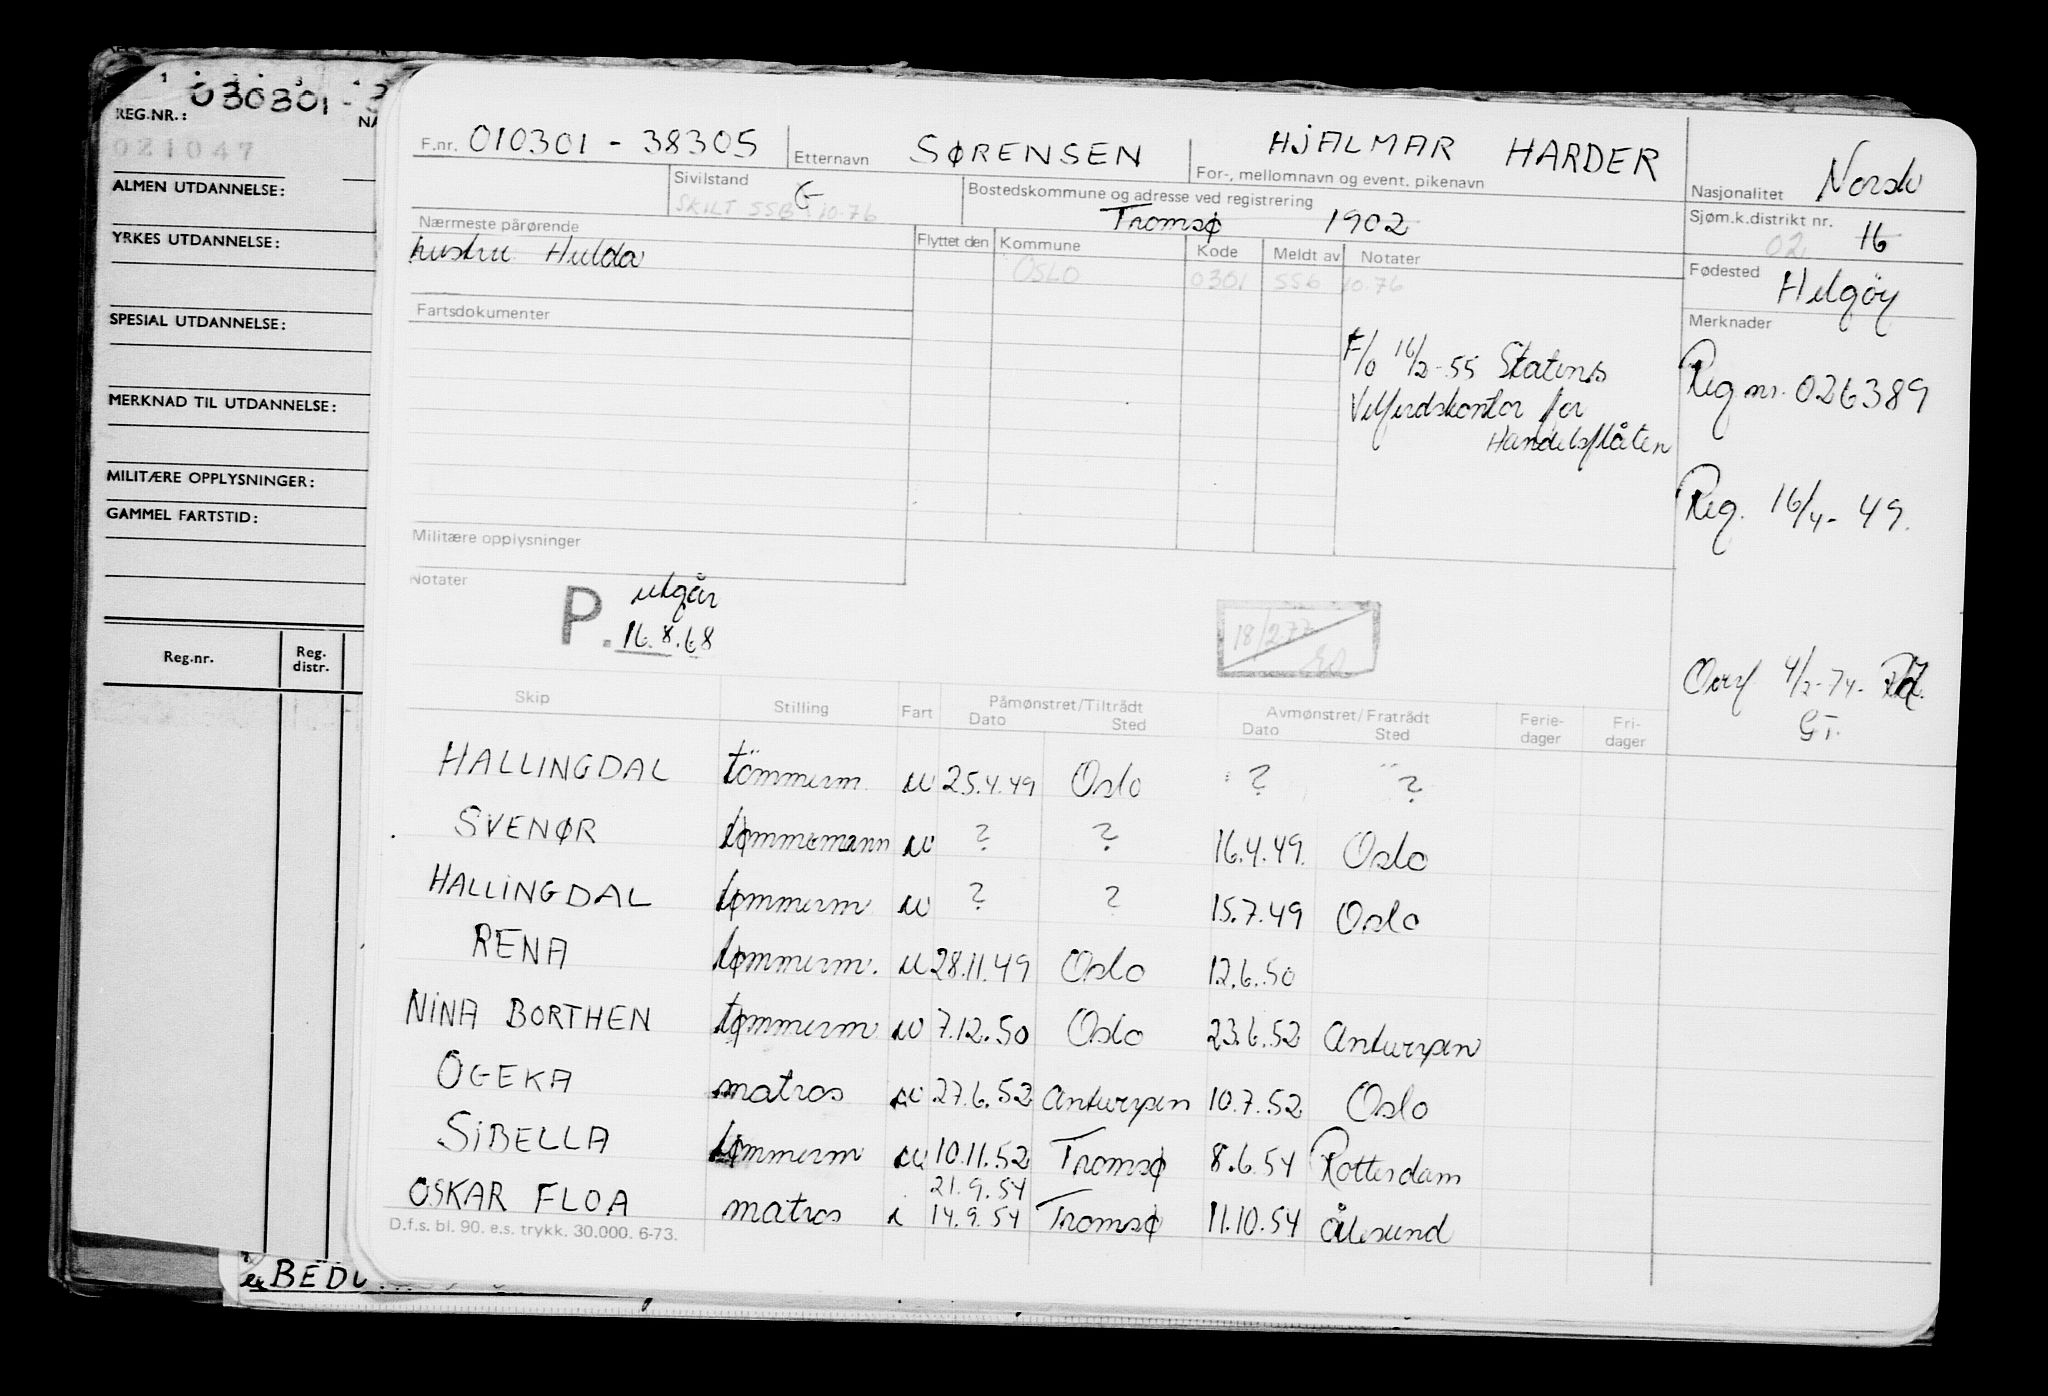 REG.NR.: 030301 -
021047
ALMEN UTDANNELSE:
YRKES UTDANNELSE:
SPESIAL UTDANNELSE:
MERKNAD TIL UTDANNELSE:
MILITÆRE OPPLYSNINGER:
GAMMEL FARTSTID:
Reg.nr. Reg. distr.
F.nr. 010301 - 38305 Etternavn SØRENSEN HJALMAR HARDER
For-, mellomnavn og event. pikenavn
Nasjonalitet Norsk
Sivilstand G
SKILT SSB 10.76
Bostedskommune og adresse ved registrering
Tromsø 1902
Sjøm.k.distrikt nr. 16
02
Nærmeste pårørende
hustru Hulda
Flyttet den Kommune Kode Meldt av Notater
OSLO 0301 SSB 10.76
Fødested Helgøy
Fartsdokumenter
Merknader
F/o 16/2-55 Statens
Velferdskontor for
Handelsflåten
Reg nr. 026389
Reg. 16/4- 49.
Militære opplysninger
Notater
P. utgår
16.8.68
18/2.77
Overf 4/2-74-
GT.
Skip Stilling Fart Påmønstret/Tiltrådt Avmønstret/Fratrådt Ferie- Fri-
Dato Sted Dato Sted dager dager
HALLINGDAL tömmerm. u 25.4.49 Oslo ? ?
SVENØR tømmermann u ? ? 16.4.49. Oslo
HALLINGDAL tømmerm u ? ? 15.7.49 Oslo
RENA tømmerm. u 28.11.49 Oslo 12.6.50
NINA BORTHEN tømmerm u 7.12.50 Oslo 23.6.52 Antwerpen
OGEKA matros u 27.6.52 Antwerpen 10.7.52 Oslo
SIBELLA tømmerm u 10.11.52 Tromsø 8.6.54 Rotterdam
21.9.54
OSKAR FLOA matros i 14.9.54 Tromsø 11.10.54 Ålesund
D.f.s. bl. 90. e.s. trykk. 30.000. 6-73.